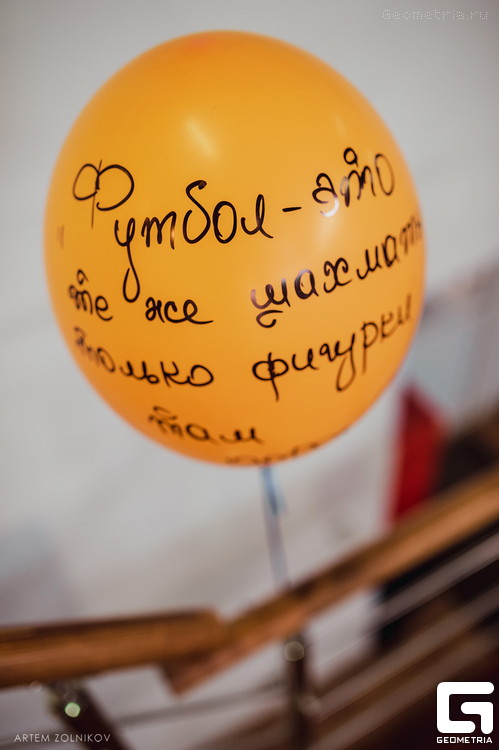 Geometria.ru
Футбол - это
те же шахматы
только фигурки
там
ARTEM ZOLNIKOV
G
GEOMETRIA